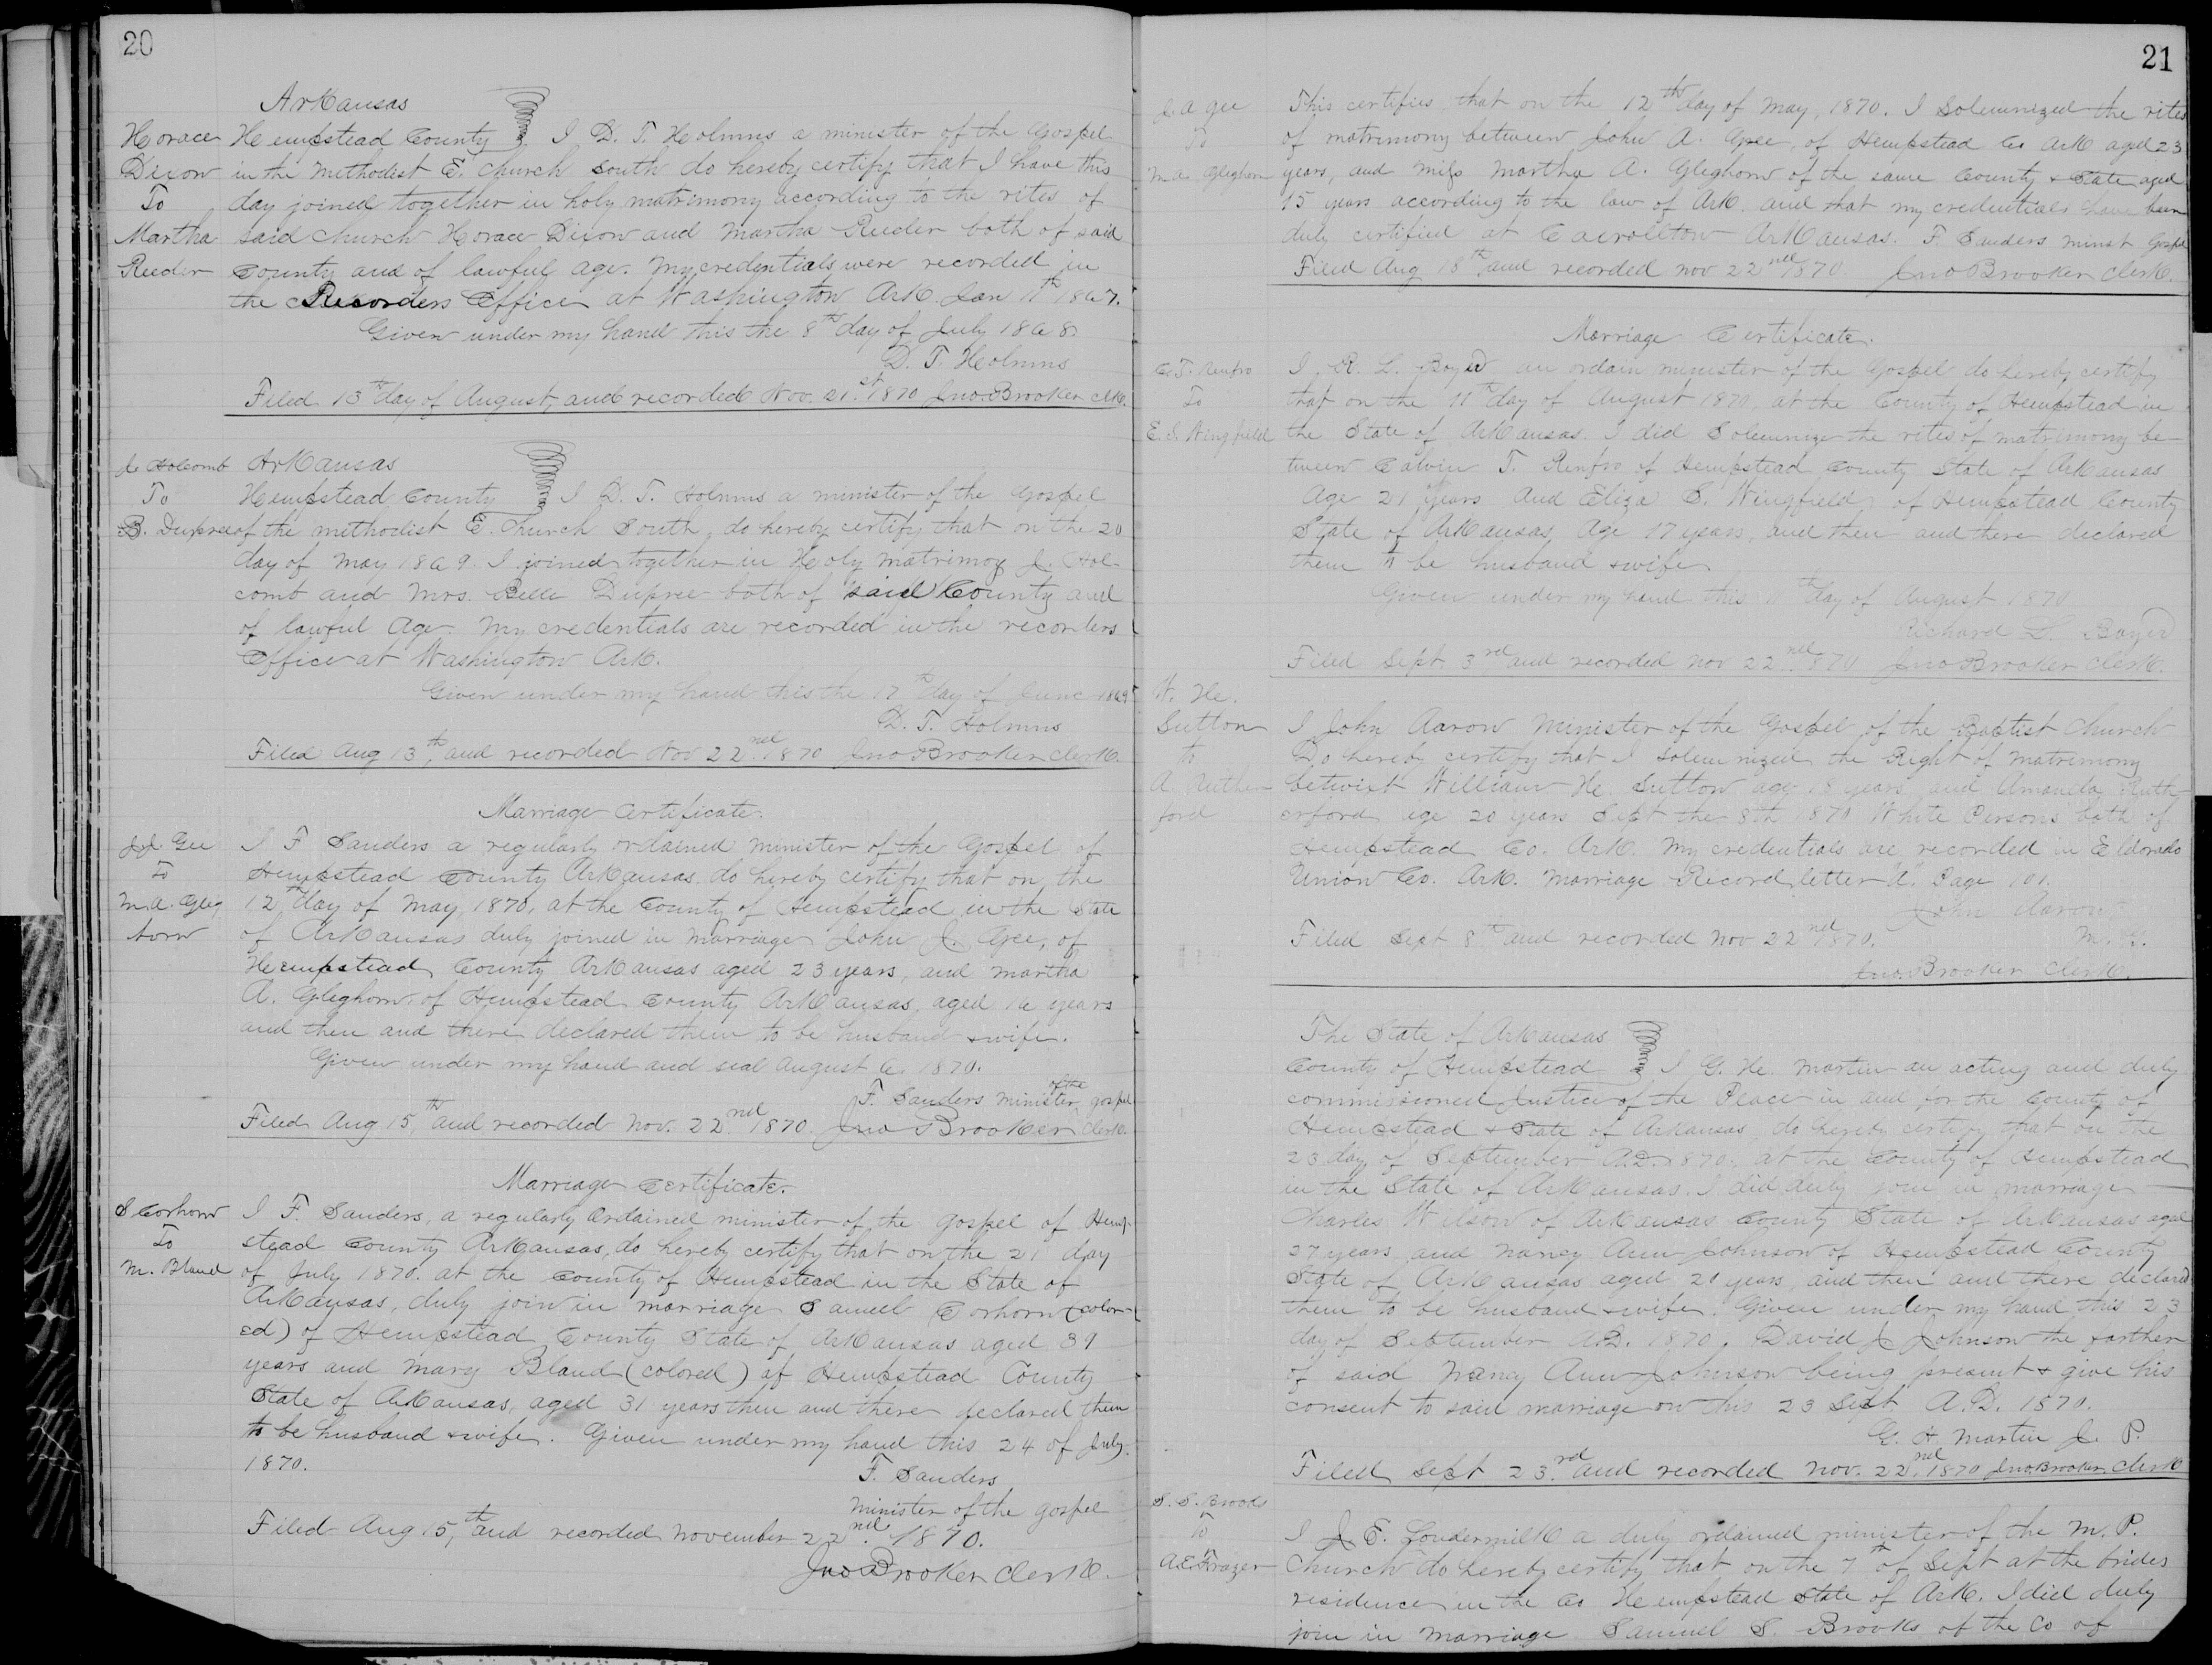 20
Arkansas
Horace Hempstead County I D. T. Holmns a minister of the Gospel
Dixon in the Methodist E. Church South do hereby certify that I have this
To day joined together in holy matrimony according to the rites of
Martha said church Horace Dixon and Martha Reeder both of said
Reeder County and of lawful age. My credentials were recorded in
the Recorders Office at Washington Ark. Jan 11th 1867.
Given under my hand this the 8th day of July 1868
D. T. Holmns
Filed 13th day of August, and recorded Nov. 21st 1870 Jno. Brooker Clk.
J. Holcomb Arkansas
To Hempstead County I D. T. Holmns a minister of the Gospel
B. Dupree of the methodist E. Church South, do hereby certify that on the 20
day of May 1869. I joined together in Holy matrimoy J. Hol-
comb and Mrs. Belle Dupree both of said County and
of lawful Age. My credentials are recorded in the recorders
Office at Washington Ark.
Given under my hand this the 17th day of June 1869
D. T. Holmns
Filed Aug 13th, and recorded Nov 22nd 1870 Jno Brooker Clerk.
Marriage Certificate.
J.J. Gee I F Sanders a regularly ordained minister of the Gospel of
To Hempstead County Arkansas do hereby certify that on the
M.A. Gleg 12th day of May, 1870, at the County of Hempstead in the State
horn of Arkansas duly joined in Marriage John J. Gee, of
Hempstead County Arkansas aged 23 years, and Martha
A. Gleghorn of Hempstead County Arkansas, aged 16 years
and then and there declared them to be husband & wife.
Given under my hand and seal August 6. 1870.
F. Sanders minister of the gospel
Filed Aug 15th and recorded Nov. 22nd 1870. Jno Brooker Clerk.
Marriage Certificate.
S Corhorn I F. Sanders, a regularly Ordained minister of the gospel of Hemp-
To stead County Arkansas, do hereby certify that on the 21 day
M. Bland of July 1870. at the County of Hempstead in the State of
Arkansas, duly join in marriage Samuel Corhorn (color-
ed) of Hempstead County State of Arkansas aged 39
years and Mary Bland (colored) of Hempstead County
State of Arkansas, aged 31 years then and there declared them
to be husband & wife. Given under my hand this 24 of July.
1870.
F. Sanders
Minister of the gospel
Filed Aug 15,th and recorded November 22nd. 1870.
Jno Brooker Clerk.
21
J. A Gee This certifies, that on the 12th day of May, 1870. I Solemnized the rites
To of matrimony between John A. Gee, of Hempstead Co Ark aged 23
M A Gleghorn years, and miss Martha A. Gleghorn of the same County & State aged
15 years according to the law of Ark. and that my credentials have been
duly certified at Carrollton Arkansas. F. Sanders Minst Gospel
Filed Aug 18th, and recorded Nov 22nd 1870 Jno Brooker Clerk.
Marriage Certificate.
C. T. Renfro I, R. L. Boyed an ordain minister of the Gospel do hereby certify
To that on the 11th day of August 1870, at the County of Hempstead in
E. S. Wingfield the State of Arkansas. I did Solemnize the rites of matrimony be-
tween Calvin T. Renfro of Hempstead County State of Arkansas
Age 21 years And Eliza S. Wingfield, of Hempstead County
State of Arkansas, Age 17 years, and then and there declared
them to be husband & wife
Given under my hand this 11th day of August 1870
Richard L. Boyed
Filed Sept 3rd and recorded Nov 22nd 1870 Jno Brooker Clerk.
W. H.
Sutton I John Aaron Minister of the Gospel of the Baptist Church
to Do hereby certify that I solemnized the Right of Matrimony
A. Ruther betwixt William H. Sutton age 18 years and Amanda Ruth-
ford erford age 20 years Sept the 8th 1870 White Persons both of
Hempstead Co. Ark. My credentials are recorded in Eldorado
Union Co. Ark. Marriage Record letter "A". Page 101.
John Aaron
Filed Sept 8th and recorded Nov 22nd 1870. M. G.
Jno. Brooker Clerk.
The State of Arkansas
County of Hempstead I G. H. Martin an acting and duly
commissioned Justice of the Peace in and for the County of
Hempstead & State of Arkansas, do hereby certify that on the
23 day of September A.D. 1870, at the County of Hempstead
in the State of Arkansas. I did duly join in marriage
Charles Wilson of Arkansas County State of Arkansas aged
27 years, and Nancy Ann Johnson of Hempstead County
State of Arkansas aged 20 years, and then and there declared
them to be husband & wife. Given under my hand this 23
day of September A.D. 1870. David J Johnson the farther
of said Nancy Ann Johnson being present & give his
consent to said marriage on this 23 Sept A.D. 1870.
G. H. Martin J. P.
Filed Sept 23rd and recorded Nov. 22nd. 1870 Jno. Brooker, Clerk
S. S. Brooks
To I J. E. Loudermilk a duly ordained minister of the M. P.
A. E. Frazer Church do hereby certify that on the 7th of Sept at the brides
residence in the Co Hempstead State of Ark. I did duly
join in marriage Samuel S. Brooks of the Co of